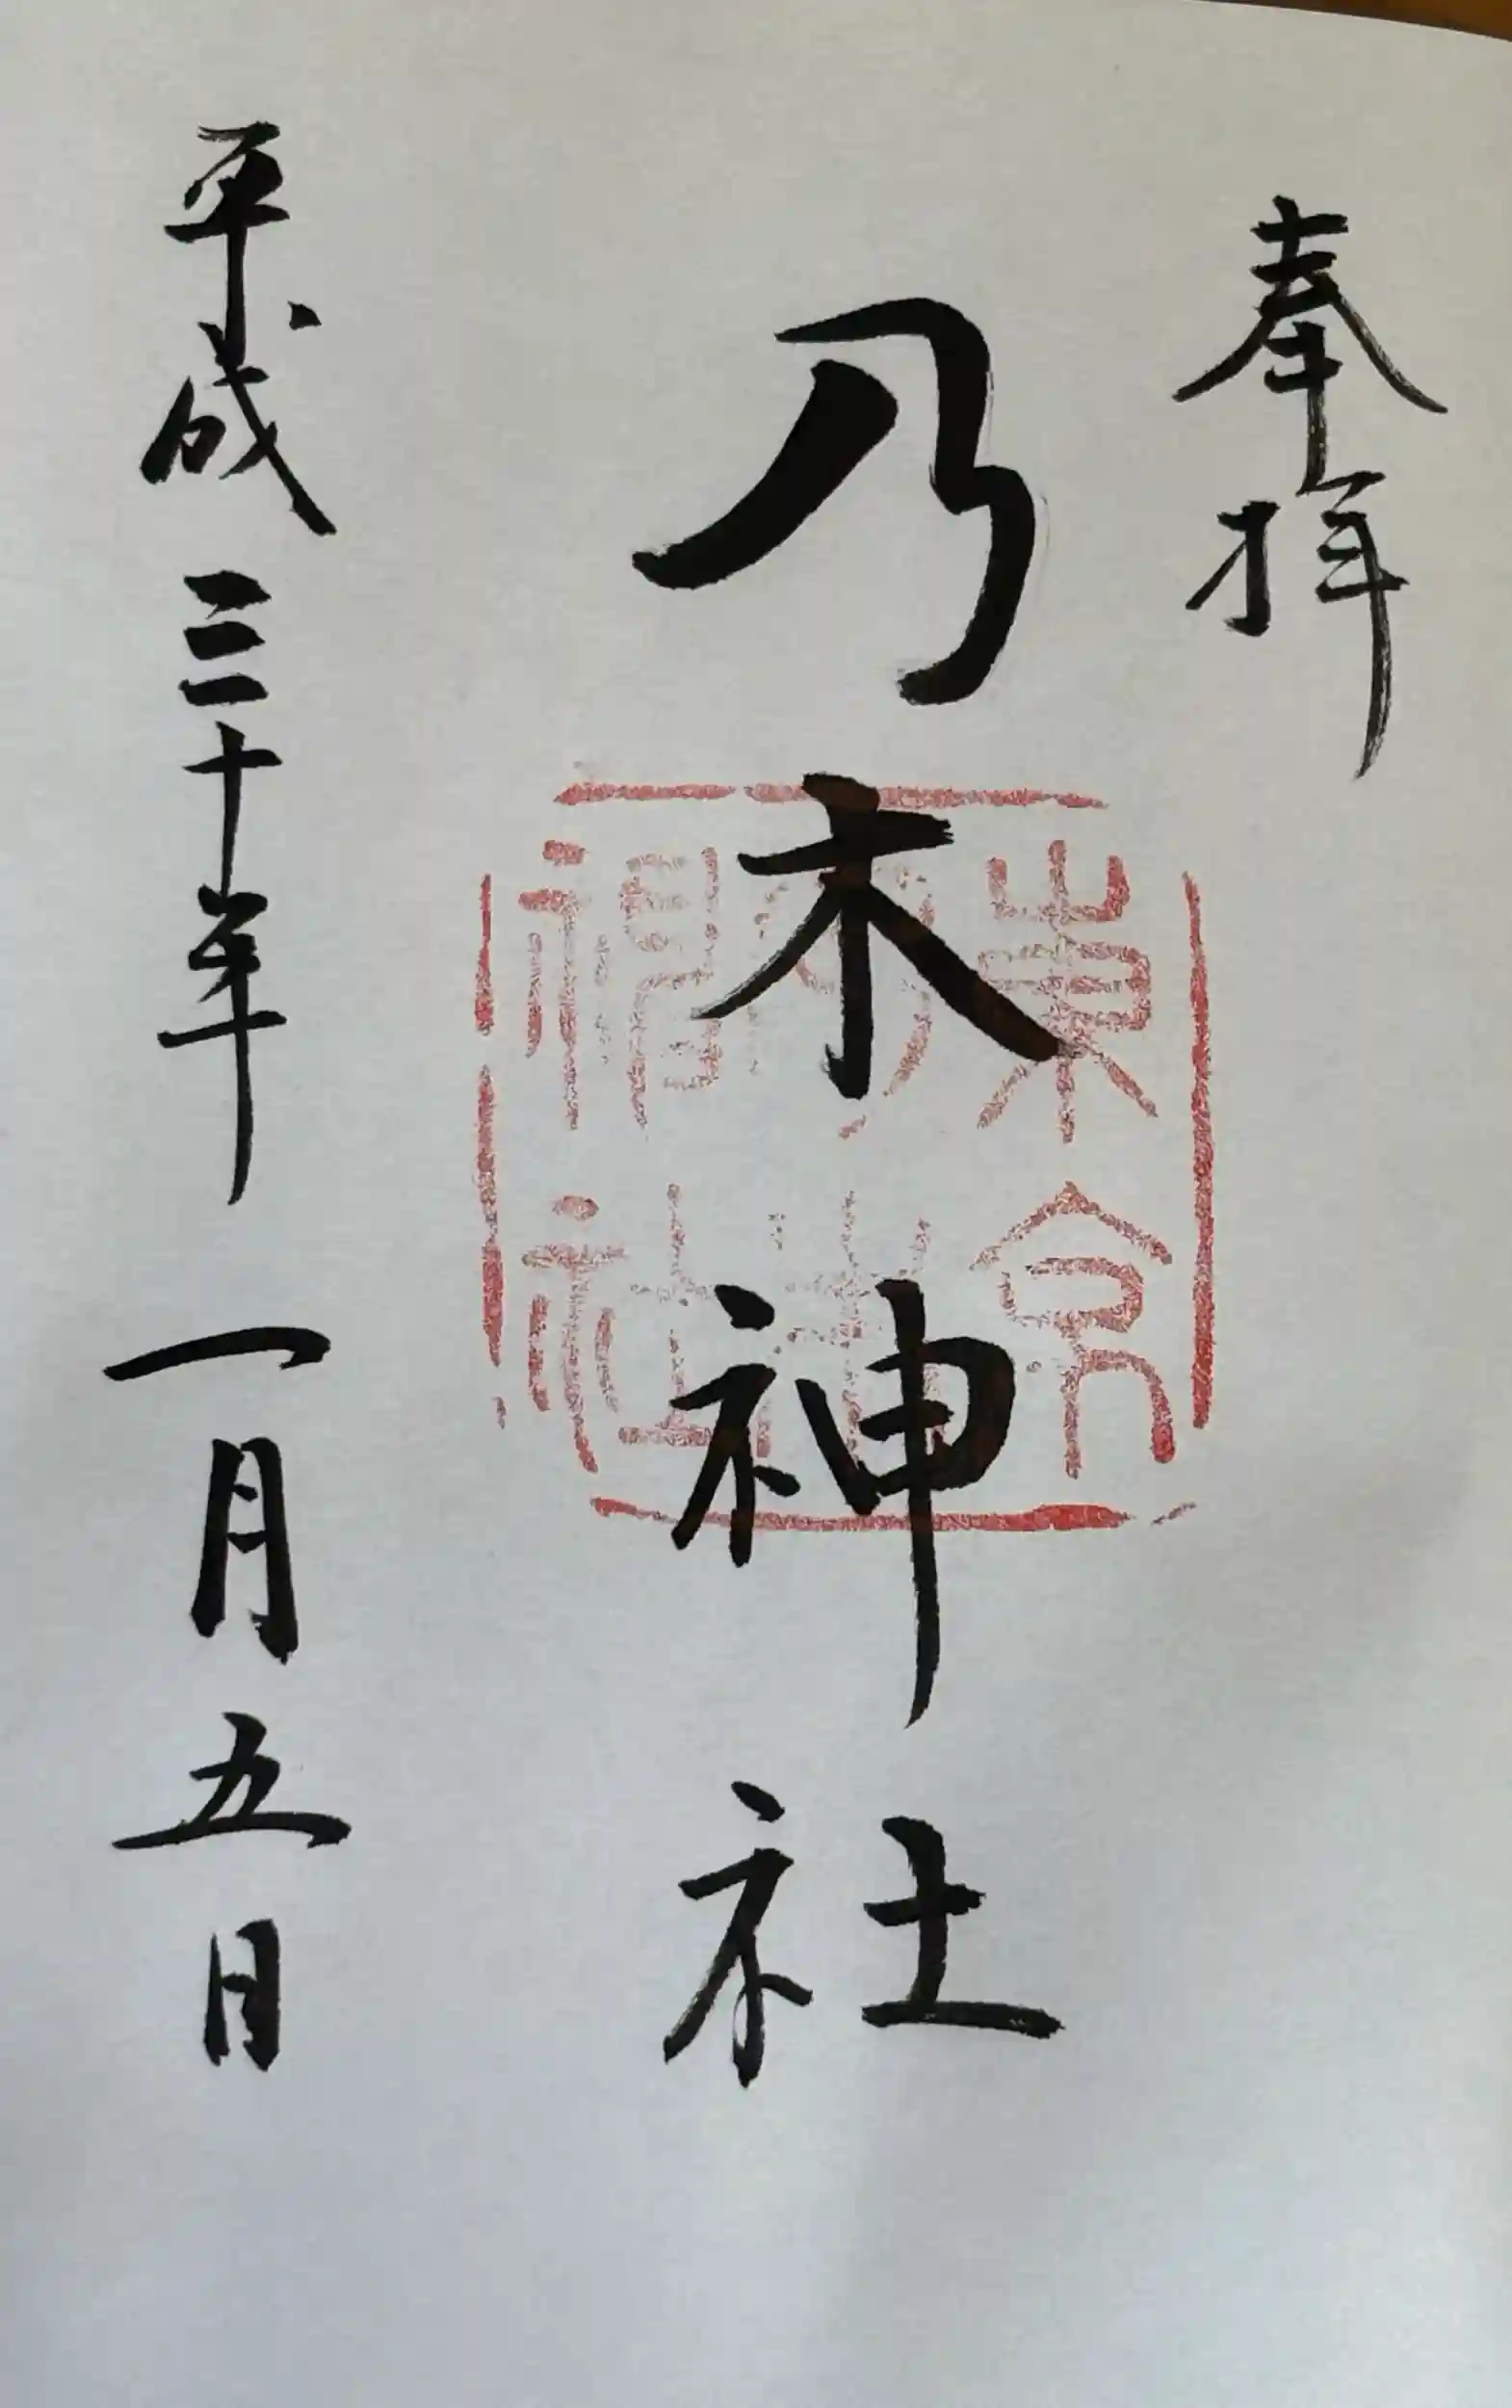 奉拝
乃木神社
平成三十年一月五日
東京
乃木
神社